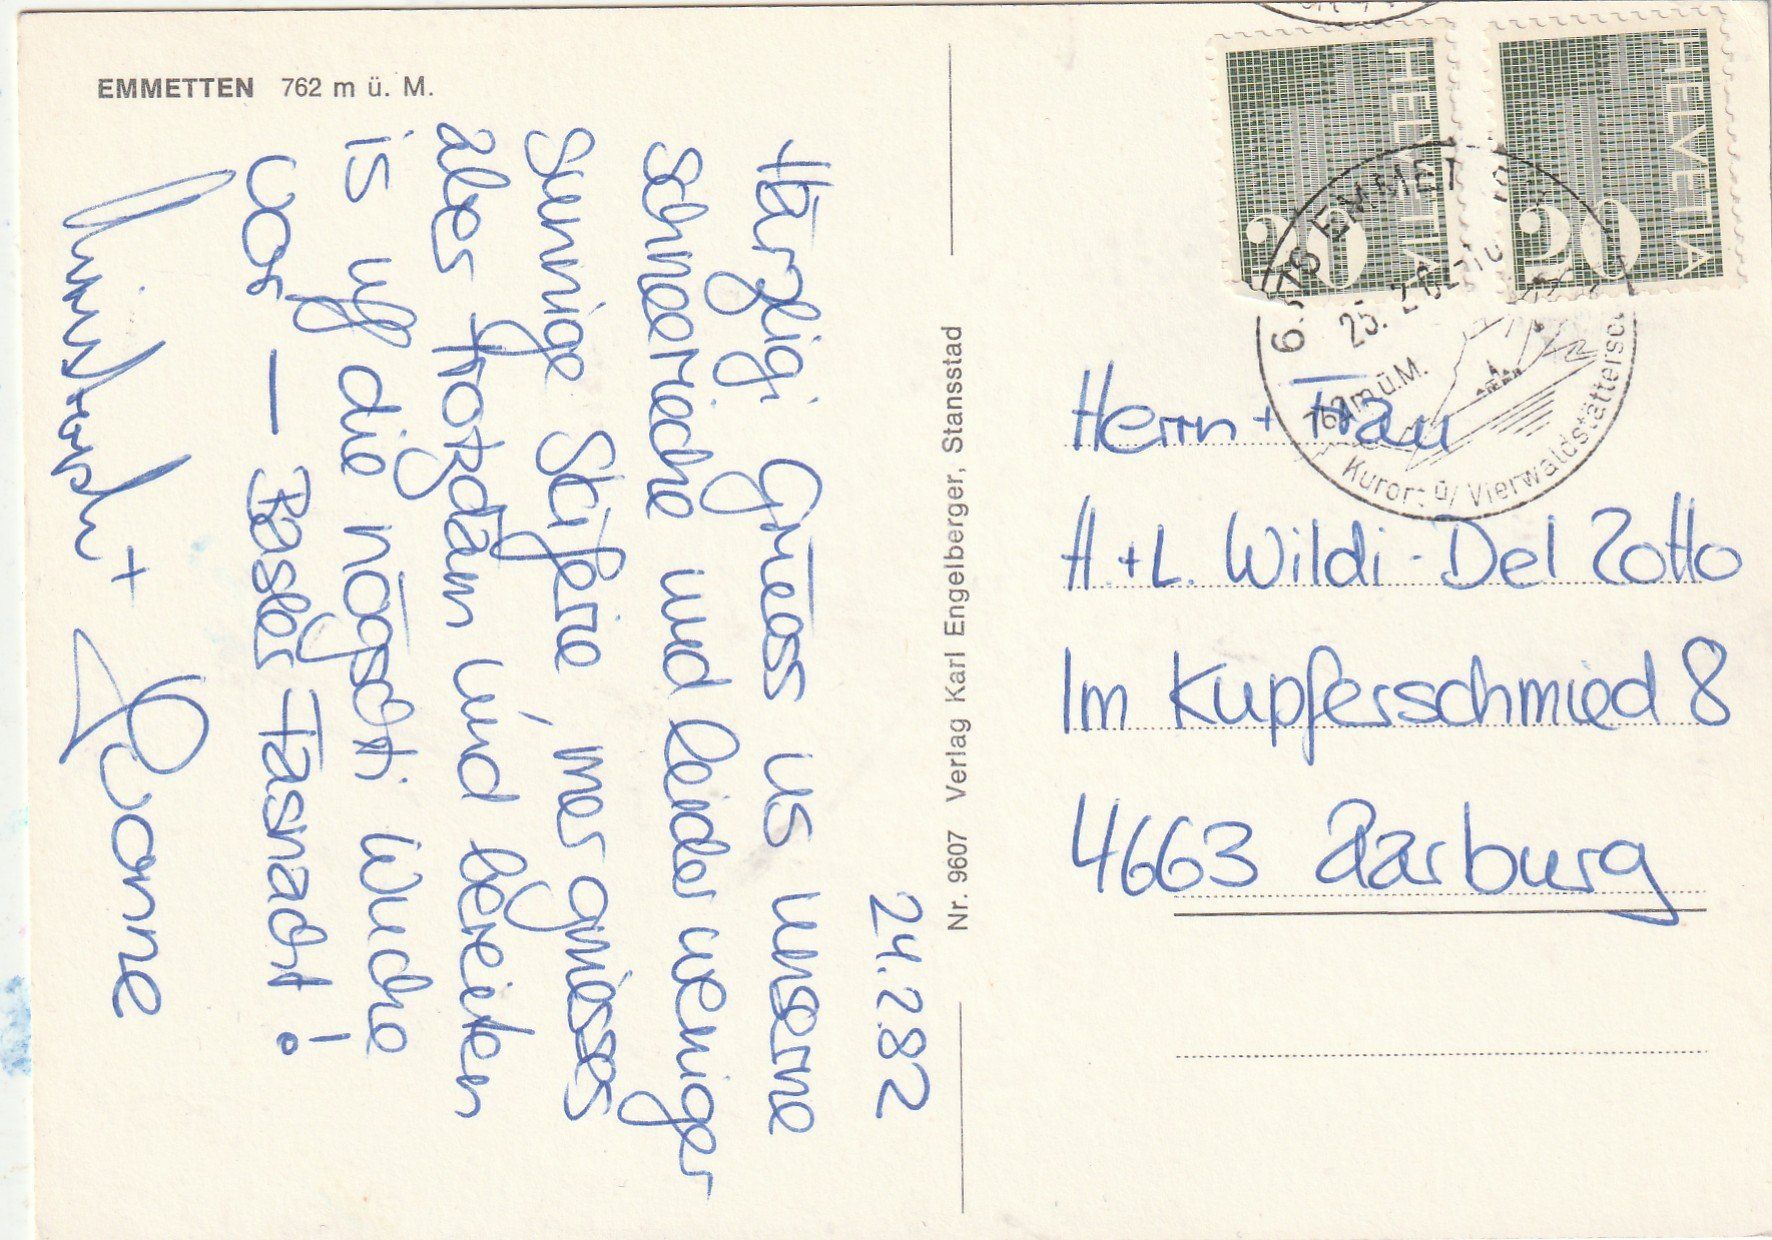 EMMETTEN 762 m ü. M.
24.2.82
Härzligi Grüess us unserne
schneeriche und leider weniger
sunnige Skiferie, mer gniesses
aber trotzdäm und bereiten
is uf die nögschti Wuche
vor — Basler Fasnacht!
+ Yvonne
Nr. 9607 Verlag Karl Engelberger, Stansstad
HELVETIA
20
HELVETIA
20
EMMET
25. 2.82
762 m ü. M.
Kurort a/ Vierwaldstätterse
Herrn + Frau
H. + L. Wildi - Del Zotto
Im Kupferschmied 8
4663 Aarburg